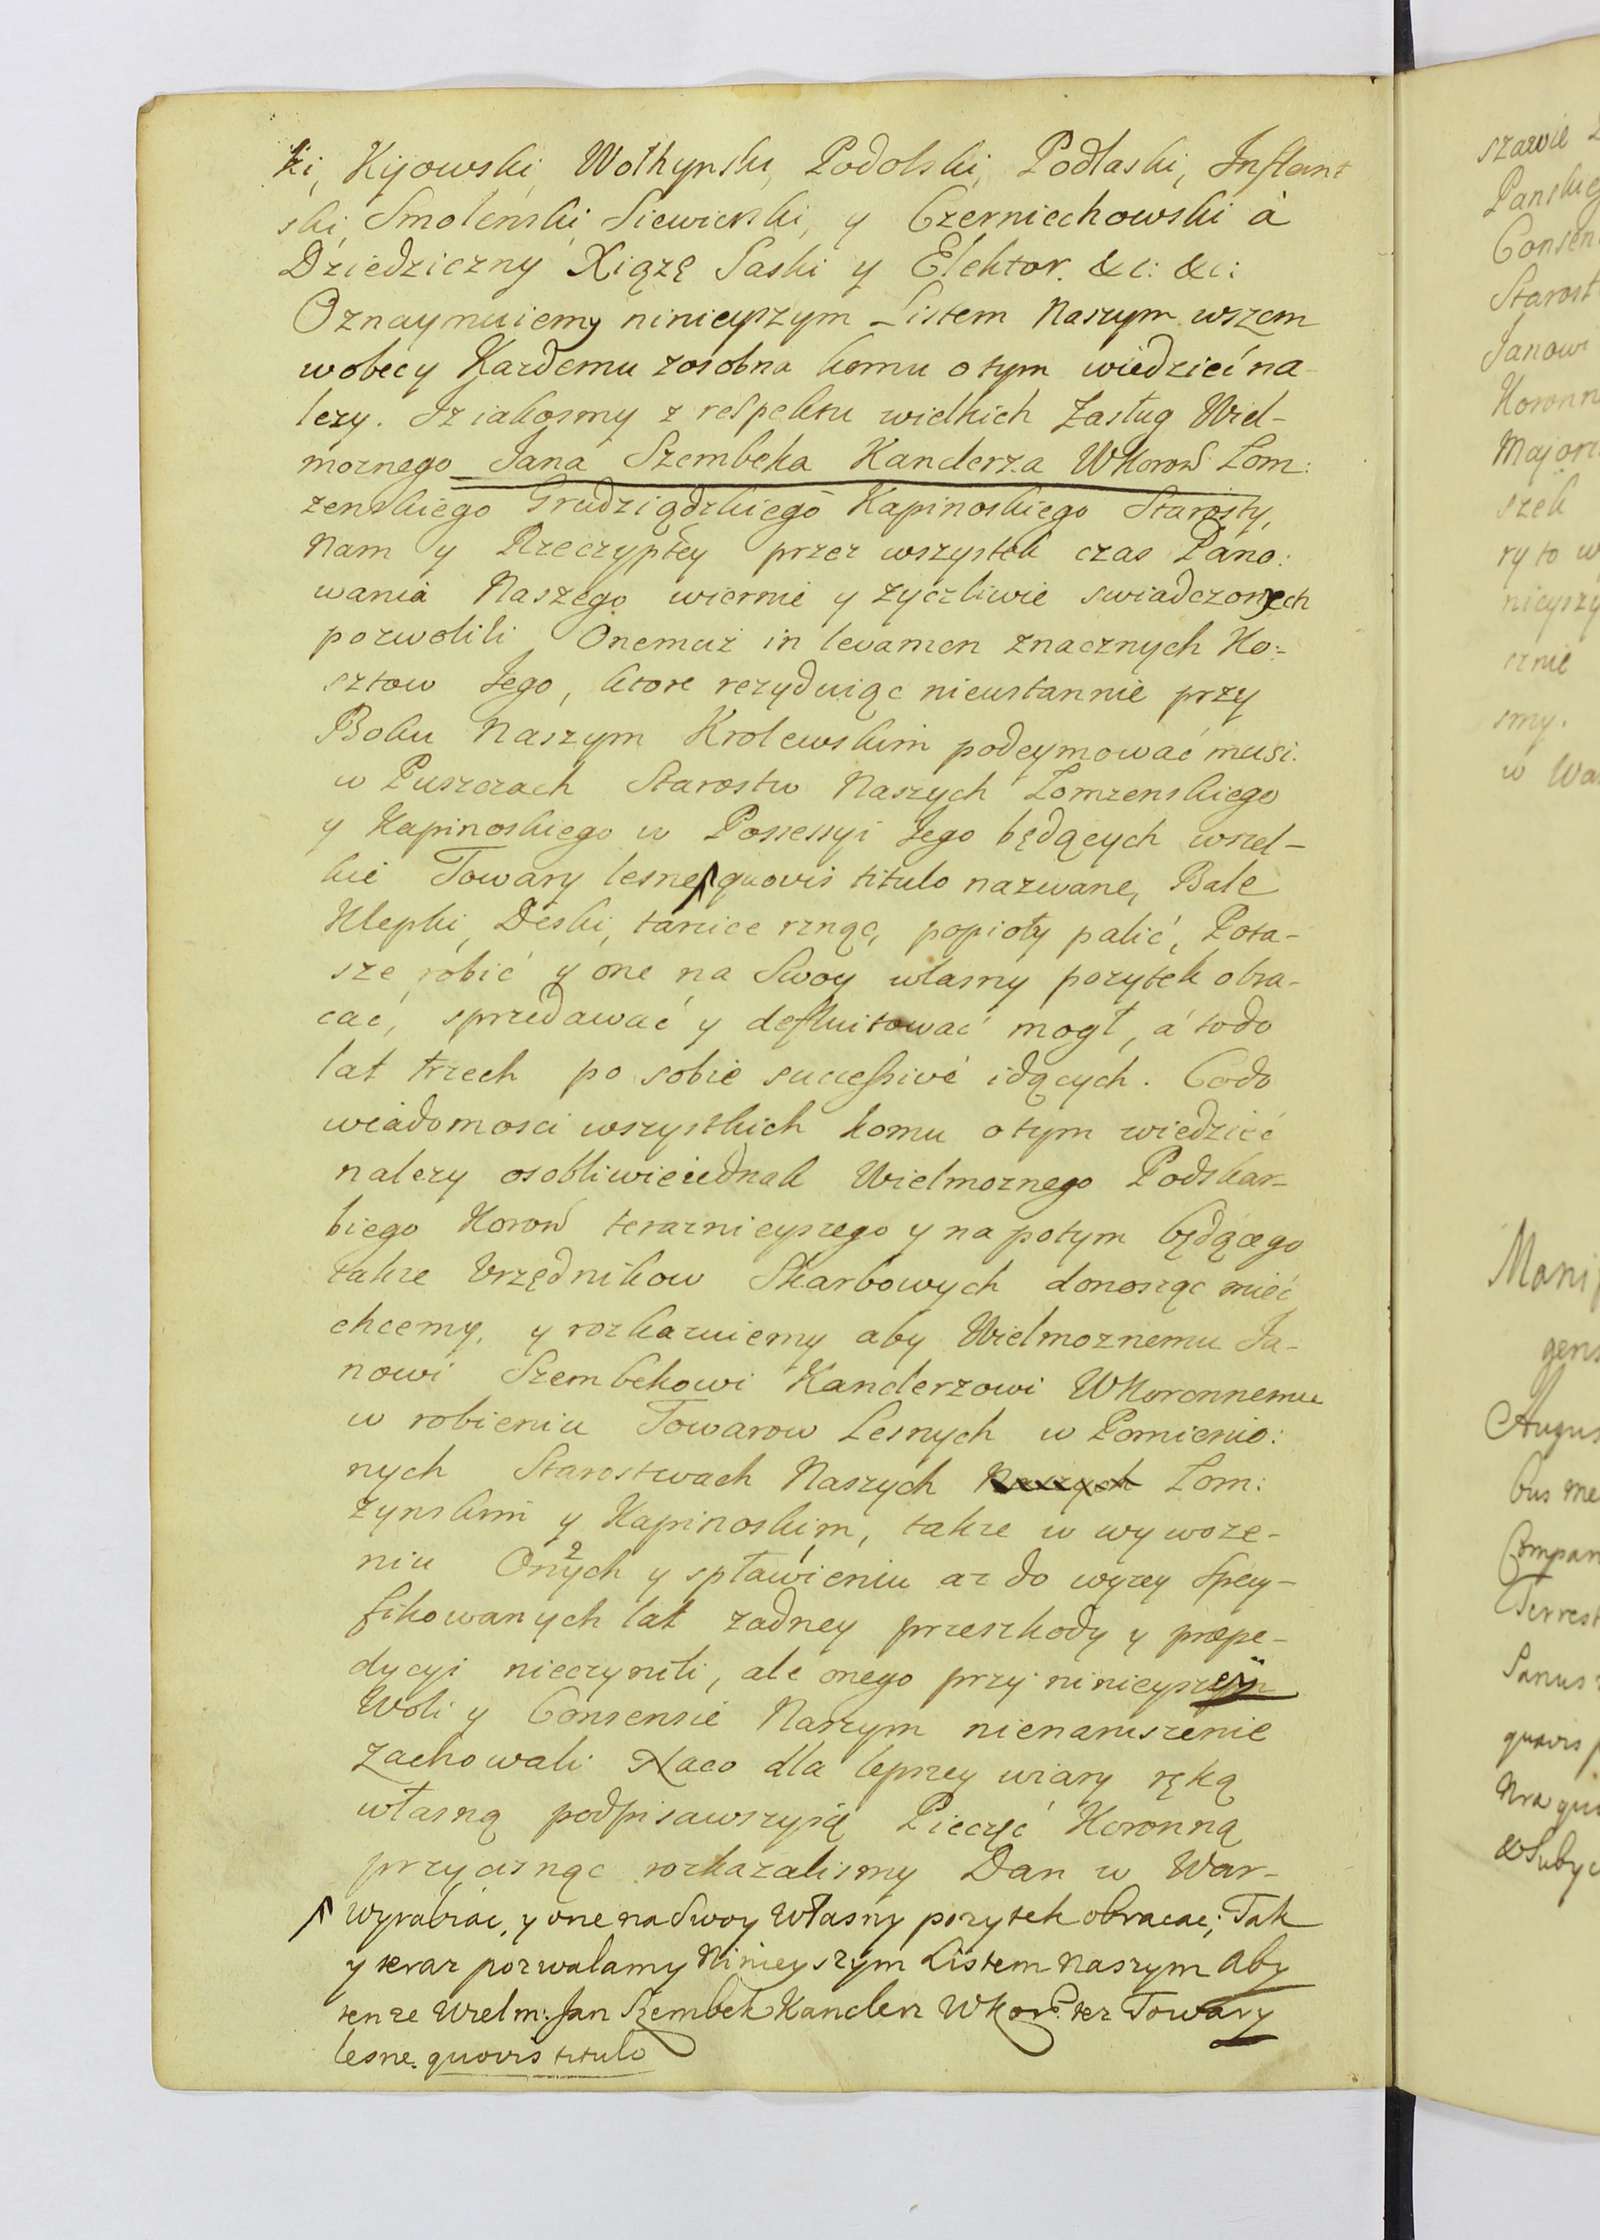 ki, Kijowski, Wołhynski, Podolski, Podlaski, Inflant
ski, Smolenski, Siewierski, y Czerniechowski á
Dziedziczny Xiążę Saski y Elektor. &c: &c:
Oznaymuiemy ninieyszym Listem Naszym wszem
wobecy Kazdemu zosobna komu o tym wiedzieć na-
lezy. Iz iakosmy z respektu wielkich Zasług Wiel-
moznego Jana Szembeka Kanclerza WKoroñ Lom:
zenskiego Grudziądzkiego Kapinoskiego Starosty,
Nam y Rzeczypłey przez wszystek czas Páno:
wania Naszego wiernie y zyczliwie swiadczonych
pozwolili Onemuż in levamen znacznych Ko:-
sztow Jego, ktore rezyduiąc nieustannie przy
Boku Naszym Krolewskim podeymować musi.
w Puszczach Starostw Naszych Lomzenskiego
y Kapinoskiego w Possessyi Jego będących wszel-
kie Towary lesne quovis titulo nazwane, Bale
Klepki, Deski, tarcice rznąc, popioły palić, Pota-
sze robić y one na Swoy własny pozytek obra-
cać, sprzedawać y defluitować mogł, á to do
lat trzech po sobie successivé idących. Co do
wiadomosci wszystkich komu o tym wiedzieć
nalezy osobliwie iednak Wielmoznego Podskar-
biego Koroñ teraznieyszego y na potym będącego
takze Urzędnikow Skarbowych donosząc mieć
chcemy, y rozkazuiemy aby Wielmoznemu Ja-
nowi Szembekowi Kanclerzowi WKoronnemu
w robieniu Towarow Lesnych w Pomienio:
nych Starostwach Naszych Naszych Lom:
zynskim y Kapinoskim, takze w wywoze-
niu Onych y spławieniu az do wyzey specy-
fikowanych lat zadney przeszkody y præpe-
dycyi nieczynili, ale onego przy ninieyszey
Woli y Consensie Naszym nienaruszenie
zachowali. Na co dla lepszey wiary ręką
własną podpisawszysię Pieczęć Koronną
przycisnąc rozkazalismy Dan w War-
wyrabiac, y one na Swoy Własny pozytek obracac; Tak
y teraz pozwalamy Ninieyszym Listem Naszym aby
tenze Wielm: Jan Szembek Kanclerz WKor: tez Towary
lesne. quovis titulo